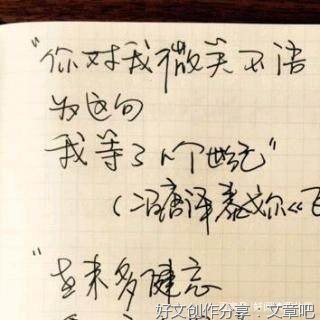 “你对我微笑不语
为这句
我等了几个世纪”
(冯唐译泰戈尔《飞
“
来多健忘
好文创作分享:文章吧